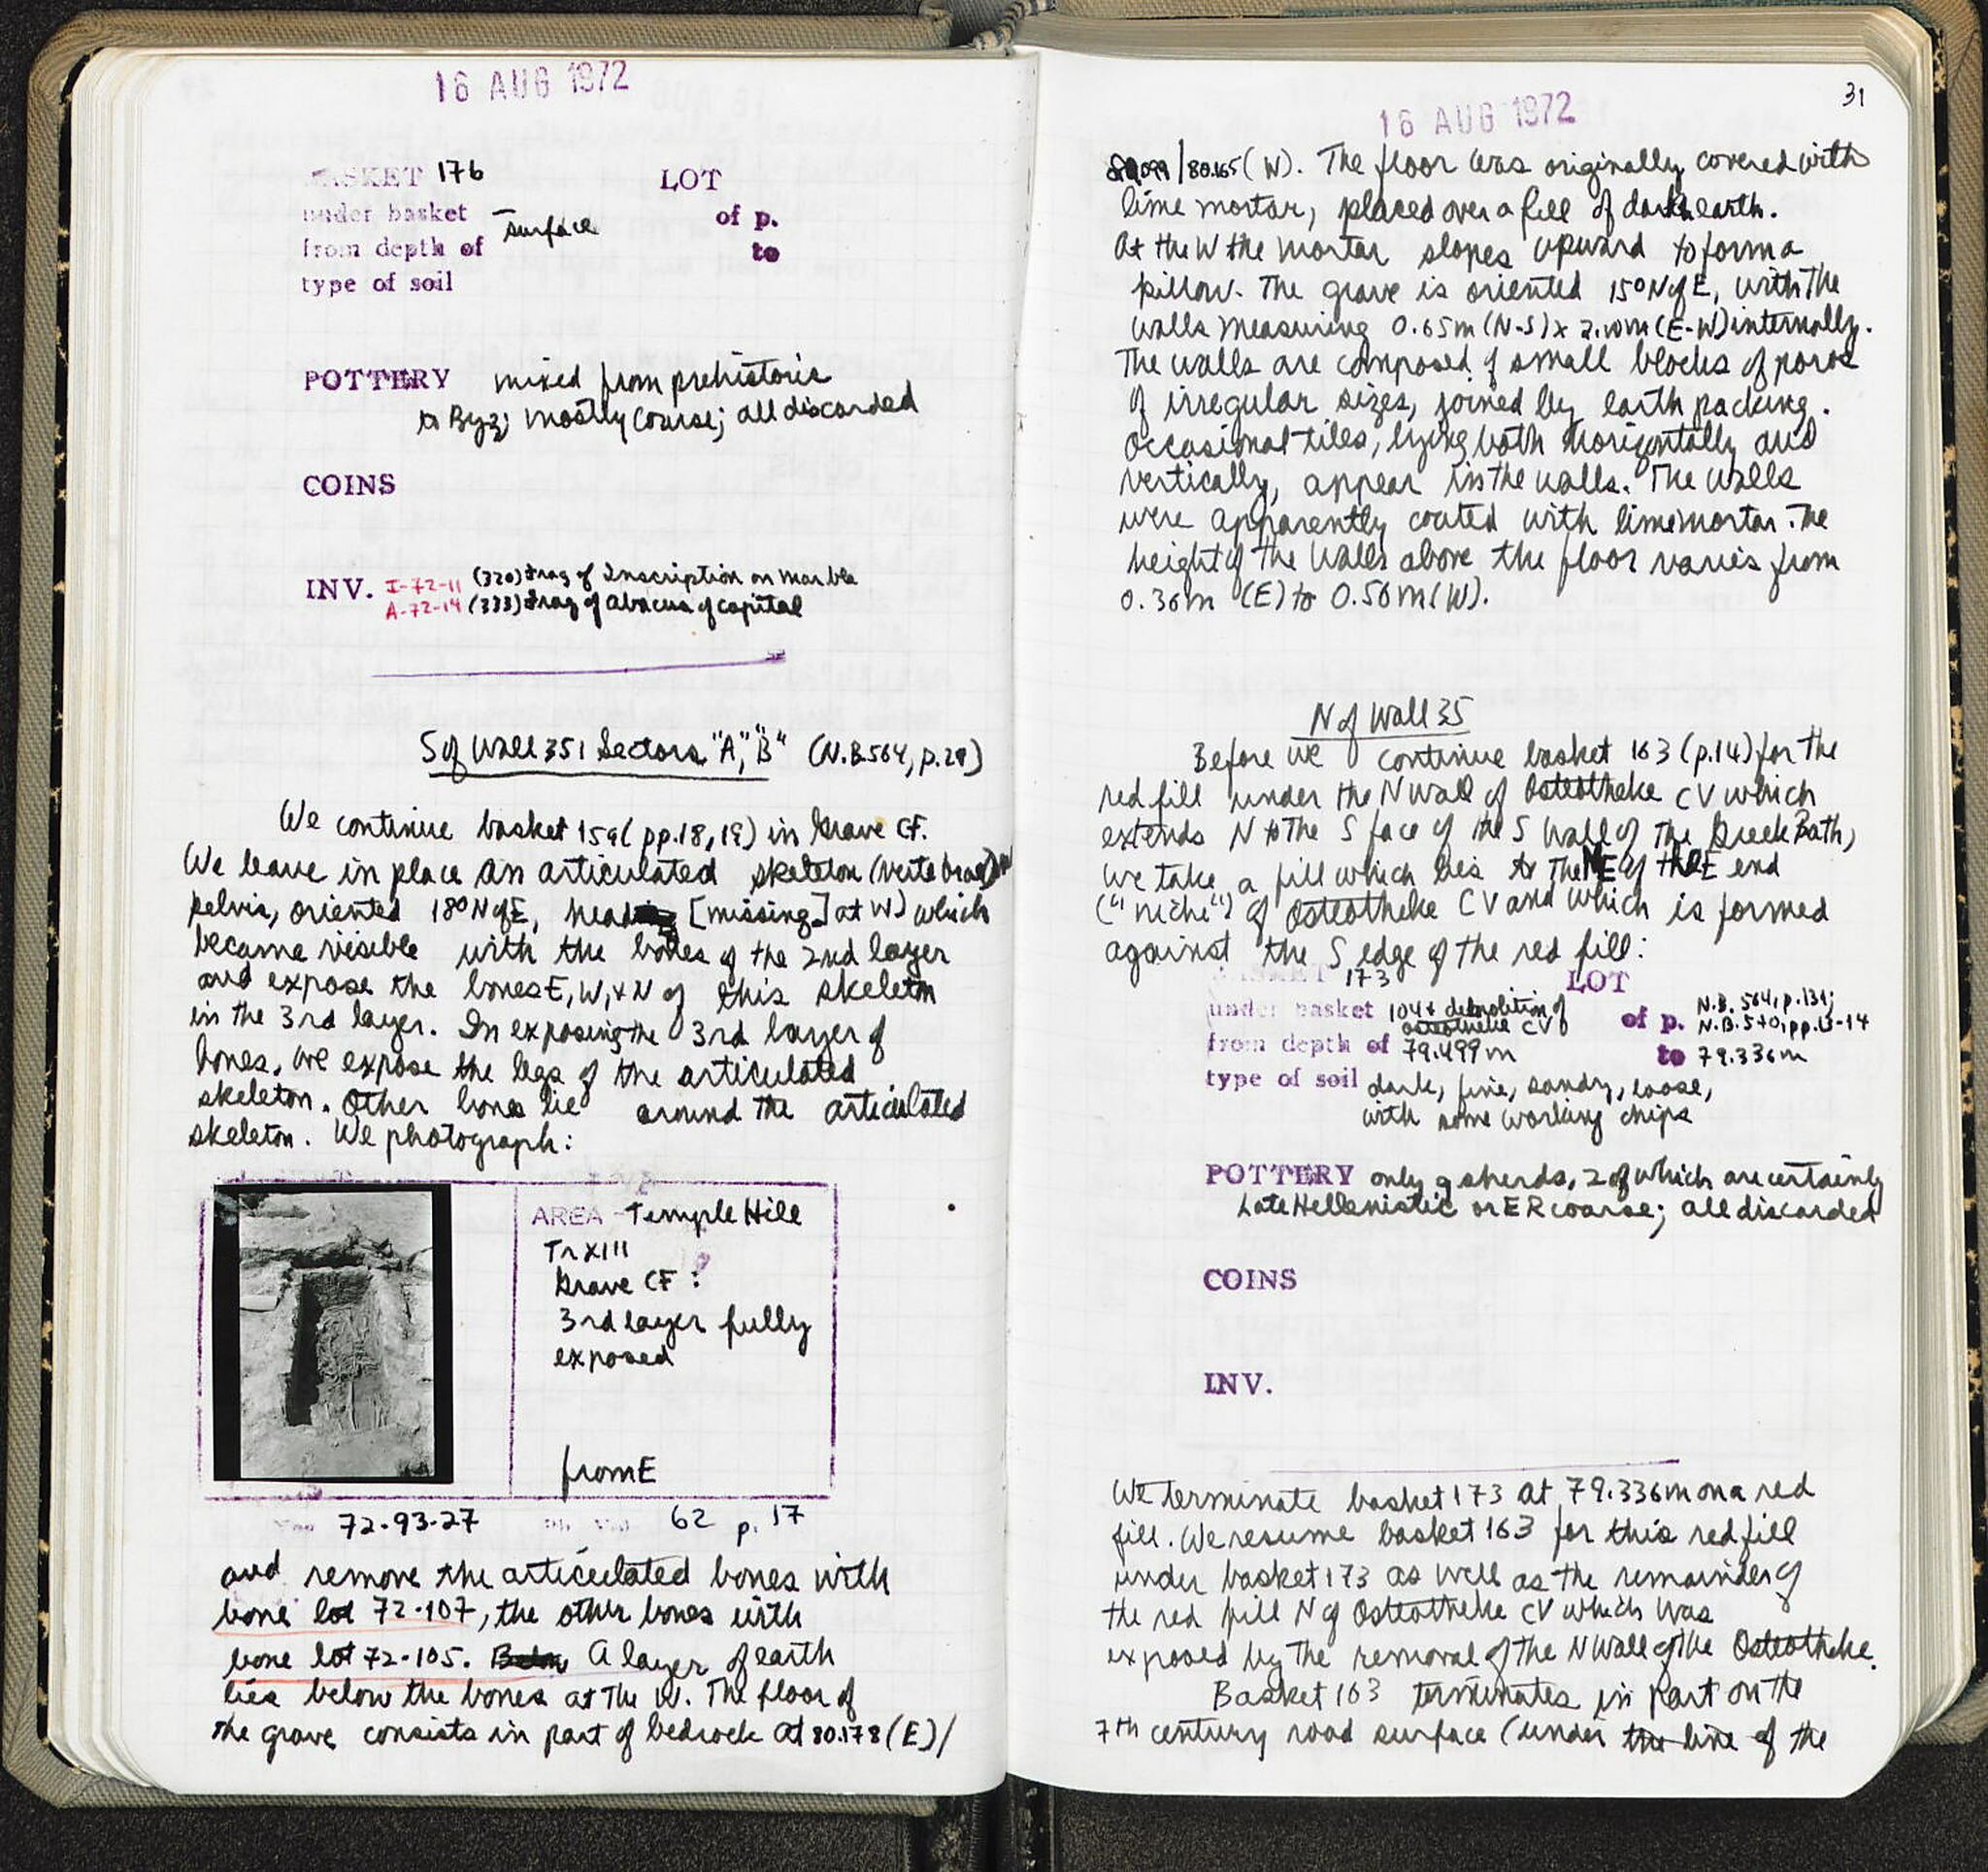 16 AUG 1972
BASKET 176 LOT
under basket — of p.
from depth of surface to
type of soil
POTTERY mixed from prehistoric
to Byz; mostly coarse; all discarded
COINS
INV. I-72-11 (320) frag of Inscription on marble
A-72-14 (333) frag of abacus of capital
S of Wall 351 Sectors "A", "B" (N.B. 564, p.29)
We continue basket 159 (pp.18,19) in Grave CF.
We leave in place an articulated skeleton (vertebrae,
pelvis, oriented 18° N of E, head [missing] at W) which
became visible with the bones of the 2nd layer
and expose the bones E, W, + N of this skeleton
in the 3rd layer. In exposing the 3rd layer of
bones, we expose the legs of the articulated
skeleton. Other bones lie around the articulated
skeleton. We photograph:
AREA - Temple Hill
Tr XIII
Grave CF:
3rd layer fully
exposed
from E
72-93-27 62 p. 17
and remove the articulated bones with
bone lot 72-107, the other bones with
bone lot 72-105. Below A layer of earth
lies below the bones at the W. The floor of
the grave consists in part of bedrock at 80.178 (E)/
31
16 AUG 1972
/80.165 (W). The floor was originally covered with
lime mortar, placed over a fill of dark earth.
At the W the mortar slopes upward to form a
pillow. The grave is oriented 15° N of E, with the
walls measuring 0.65m (N-S) x 2.10m (E-W) internally.
The walls are composed of small blocks of poros
of irregular sizes, joined by earth packing.
Occasional tiles, lying both horizontally and
vertically, appear in the walls. The walls
were apparently coated with lime mortar. The
height of the walls above the floor varies from
0.36m (E) to 0.56m (W).
N of Wall 35
Before we continue basket 163 (p.14) for the
red fill under the N wall of Osteotheke CV which
extends N to the S face of the S wall of the Greek Bath,
we take a fill which lies to the NE of the E end
("niche") of Osteotheke CV and which is formed
against the S edge of the red fill:
BASKET 173 LOT
under basket 104 + demolition of osteotheke CV of p. N.B. 564, p.131; N.B. 570, pp.13-14
from depth of 79.499m to 79.336m
type of soil dark, fine, sandy, loose,
with some working chips
POTTERY only 9 sherds, 2 of which are certainly
Late Hellenistic or ER coarse; all discarded
COINS
INV.
We terminate basket 173 at 79.336m on a red
fill. We resume basket 163 for this red fill
under basket 173 as well as the remainder of
the red fill N of Osteotheke CV which was
exposed by the removal of the N Wall of the Osteotheke.
Basket 163 terminates in part on the
7th century road surface (under the line of the